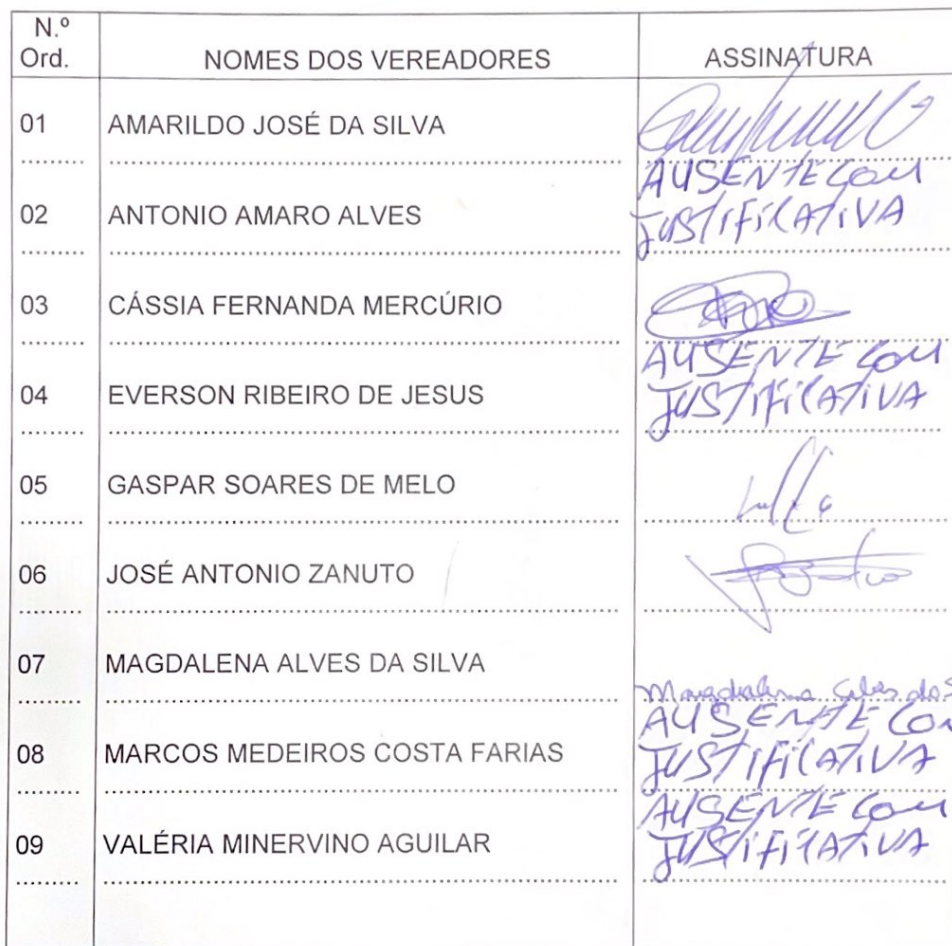 N.º
Ord.
NOMES DOS VEREADORES
ASSINATURA
01
AMARILDO JOSÉ DA SILVA
02
ANTONIO AMARO ALVES
AUSENTE COM
JUSTIFICATIVA
03
CÁSSIA FERNANDA MERCÚRIO
04
EVERSON RIBEIRO DE JESUS
AUSENTE COM
JUSTIFICATIVA
05
GASPAR SOARES DE MELO
06
JOSÉ ANTONIO ZANUTO
07
MAGDALENA ALVES DA SILVA
08
MARCOS MEDEIROS COSTA FARIAS
AUSENTE COM
JUSTIFICATIVA
09
VALÉRIA MINERVINO AGUILAR
AUSENTE COM
JUSTIFICATIVA